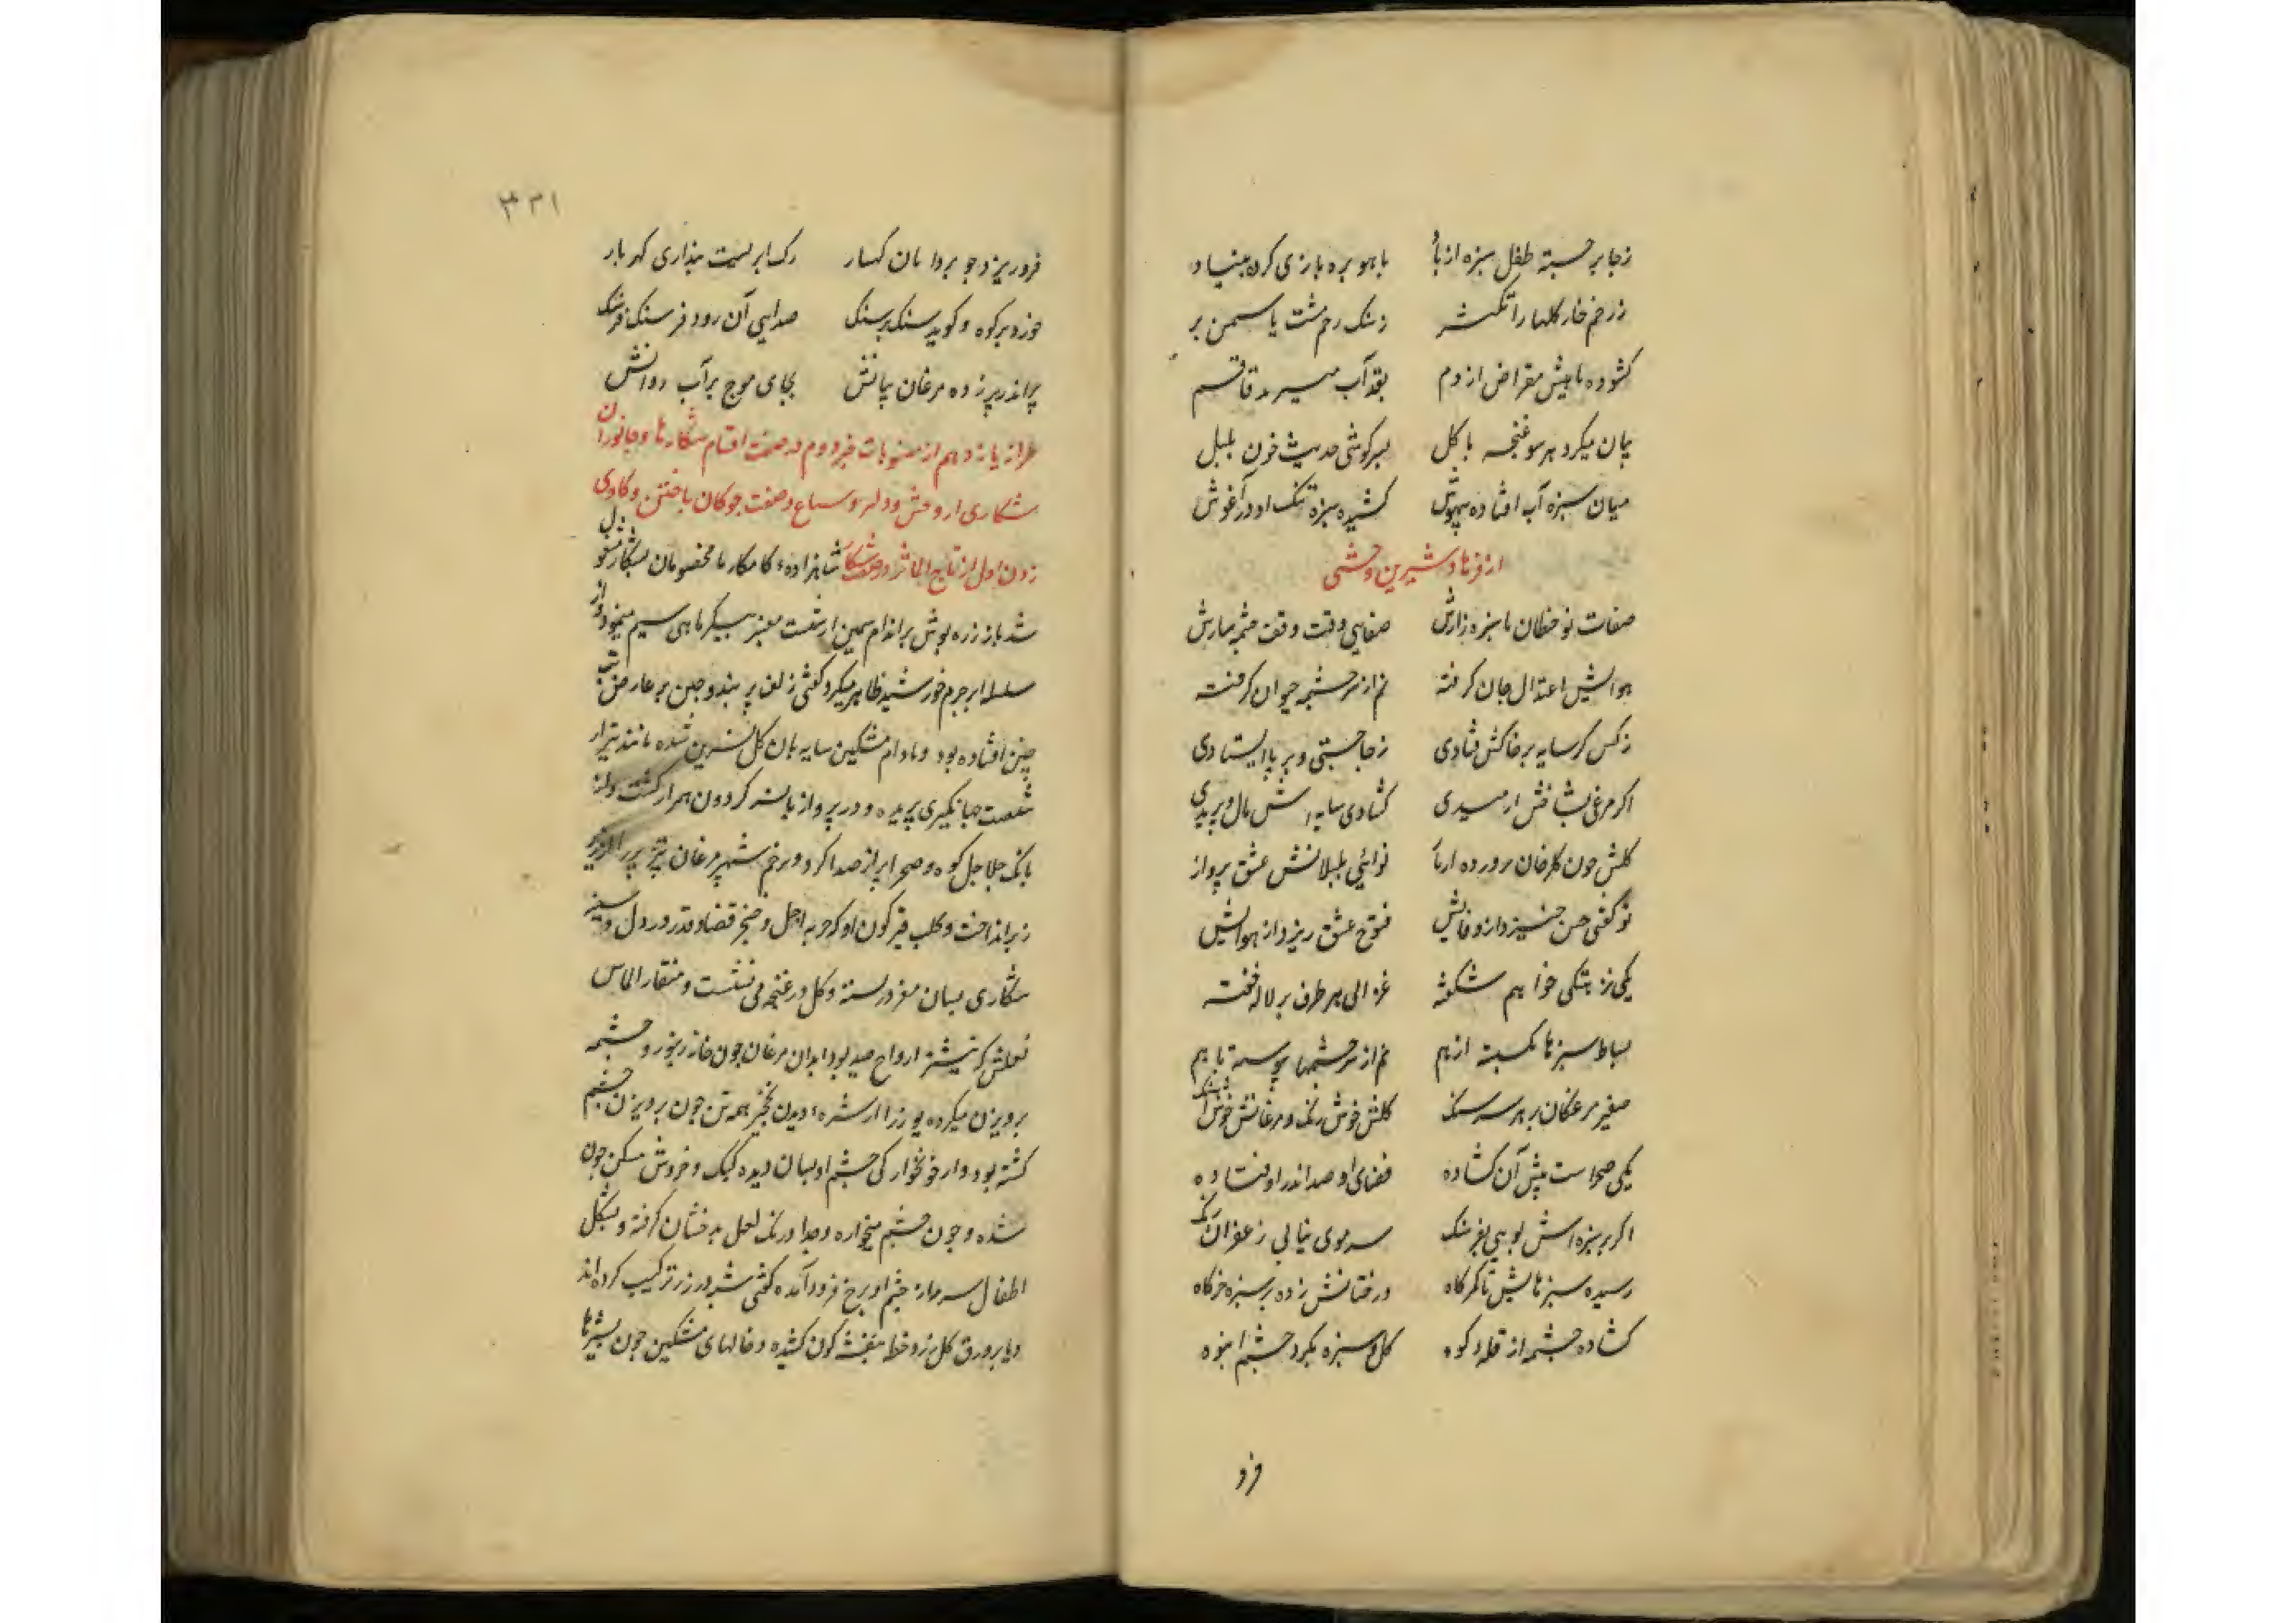 زجا برجسته طفل سبزه از باد باهو بره بازی کرده بنیاد
ز زخم خار کلها را تکسر زسنک رحم مشت یاسمن بر
کشوده ماهیش مقراض از دم بقد آب میبرد قاقم
بیان میکرد هر سو غنچه با کل بسرکوشی حدیث خون بلبل
میان سبزه آب افتاده بیهوش کشیده سبزه تنک او در آغوش
از فرهاد و شیرین وحشی
صفات نوخطان با سبزه زارش صفایی وقت وقف چشمه سارش
هوایش اعتدال جان کرفته نم از سرچشمه حیوان کرفته
ز کس کر سایه بر خاکش فتادی زجا جستی و بر پا ایستادی
اکر مرغی بشاخش ارمیدی کشادی سایه اش بال و پریدی
کلش چون کلرخان پرورده ناز نوائی بلبلانش عشق پرواز
تو کفتی حسن خیزد از وفایش فتوح عشق ریزد از هوایش
یکی زهتکی خواهم شکفته غزالی هر طرف بر لاله خفته
بساط سبزها نکسسته از هم نم از سرچشمها پیوسته با هم
صفیر مرغکان بر هر سر سنک کلش خوش رنک و مرغانش خوش آهنک
یکی صحراست پیش آن کشاده فضای او صد اندر او فتاده
اکر بر سبزه اش پویی بفرسنک سر موی نیابی زعفران رنک
رسیده سبزهایش تا کمرکاه درختانش زده بر سبزه خرکاه
کشاده چشمه از قله کوه کل و سبزه بکرد چشمه انبوه
فرو
۳۳۱
فرو ریزد چو بر دامان کهسار رک ابریست پنداری کهربار
خورد بر کوه و کوید سنک بر سنک صدایی آن رود فرسنک فرسنک
پر اندر پر زده مرغان بیانش بجای موج بر آب روانش
طراز یازدهم از منسوبات خبر دوم در صفت اقسام شکارها و جانوران
شکاری از وحش و دلر و سباع و صفت چوکان باختن و کادی
زدن اول از تاج الماثر در صفت شکار شاهزاده کامکار با مخصومان بشکار مشغول
شد باز زره پوش بر اندام سیمین از شست معنبر پیکر ماهی سیم مینمود و از
سلسله ابر جرم خورشید ظاهر میکرد کفتی زلف پر بند و چین بر عارض بت
چین افتاده بود و یا دام مشکین سایه بان کل نسرین شده مانند تیر از
شست جهانکیری پریده و در پرواز با نسر کردون همراز کشت و از
بانک جلاجل کوه و صحرا پر از صدا کرد و زخم شهپر مرغان تیز پر را
زیر انداخت و کلب قیر کون او که حربه اجل و خنجر قضا و قدر در دل و سینه
شکاری بسان مغز در پسته و کل در غنچه می نشست و منقار الماس
فعلش که نیشتر ارواح صید بود ابدان مرغان چون خانه زنبور و چشمه
پرویزن میکرده یوز را از شره دیدن نخچیر همه تن چون پرویزن چشم
کشته بود و از خونخوارکی چشم او بسان دیده کبک و خروس مسکن خون
شده و چون چشم میخواره و صهبا رنک لعل بدخشان کرفته و بشکل
اطفال سرمه از چشم او بر رخ فرود آمده کفتی شبه در زر ترکیب کرده اند
و یا بر ورق کل زرد خط بنفشه کون کشیده و خالهای مشکین چون بشیزها